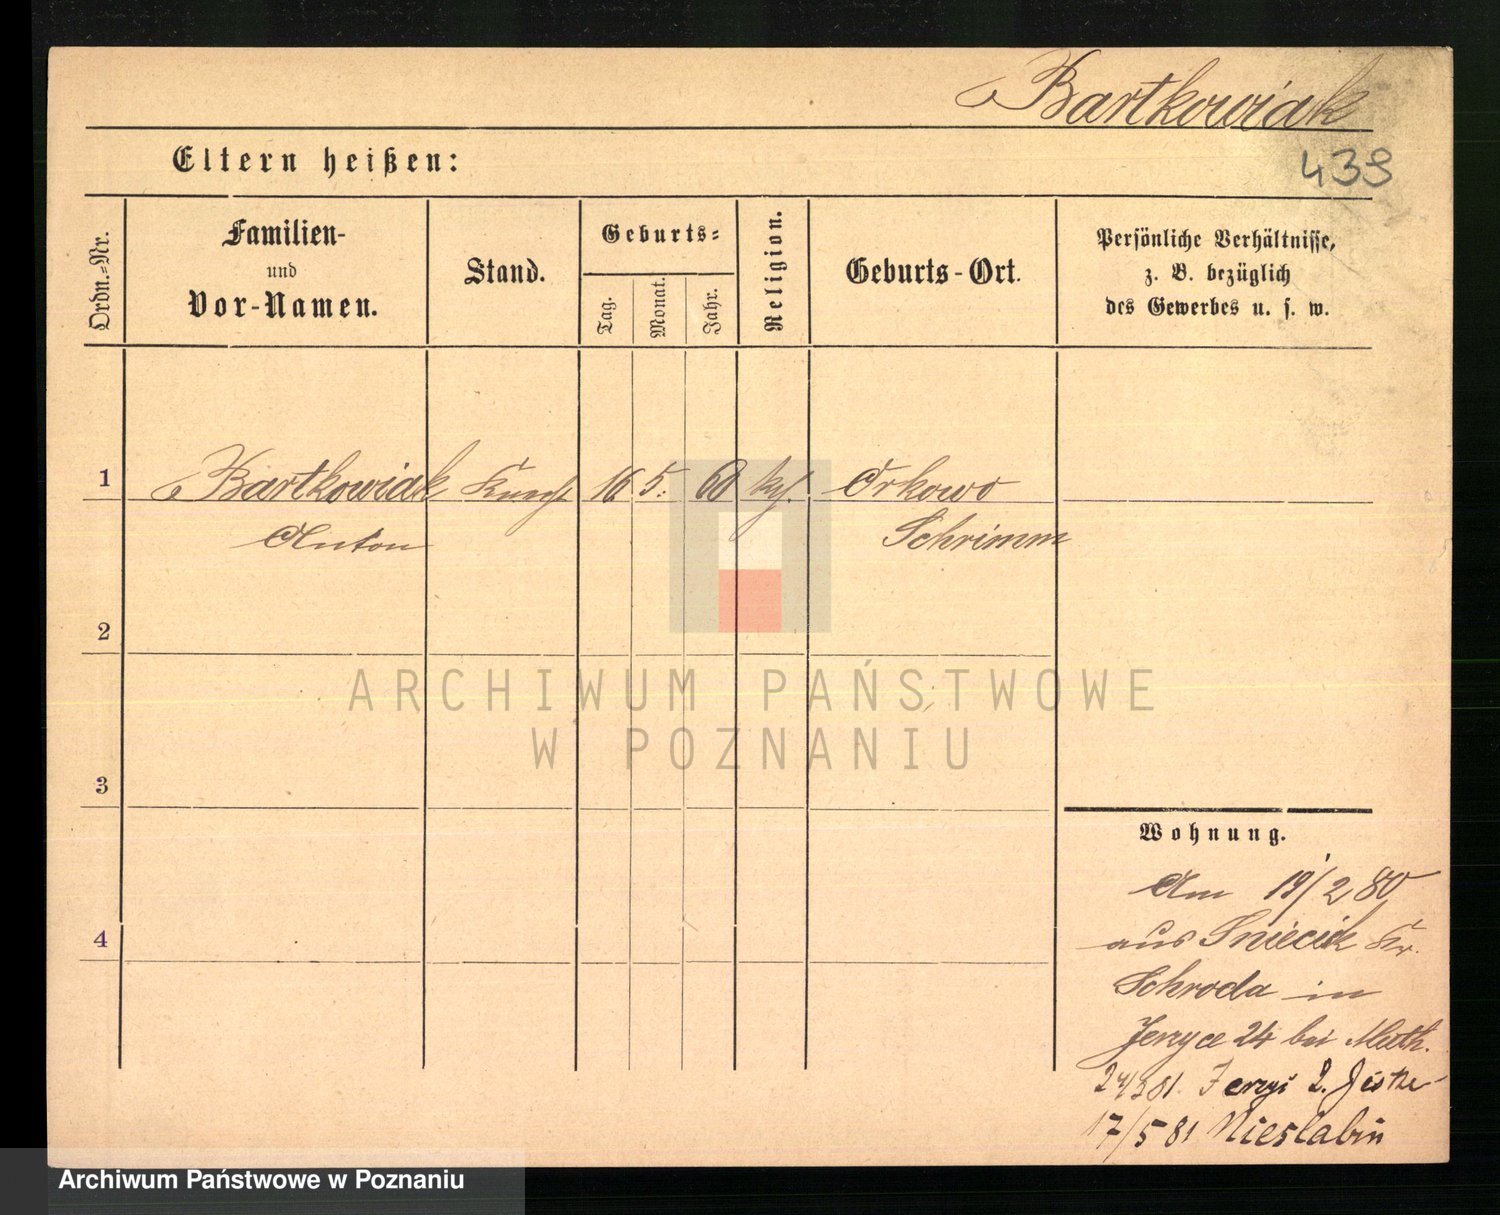 Bartkowiak
439
Eltern heißen:
Ordn.=Nr.
Familien-
und
Vor-Namen.
Stand.
Geburts=
Tag.
Monat.
Jahr.
Religion.
Geburts-Ort.
Persönliche Verhältnisse,
z. B. bezüglich
des Gewerbes u. s. w.
1 Bartkowiak Knecht 16 5. 60 kth. Orkowo
Anton Schrimm
2
ARCHIWUM PAŃSTWOWE
W POZNANIU
3
Wohnung.
Am 19/2 80
4 aus Sniecik Kr.
Schroda in
Jerzyce 24 bei Muth.
Jerzyi 2.
17/5 81
Archiwum Państwowe w Poznaniu